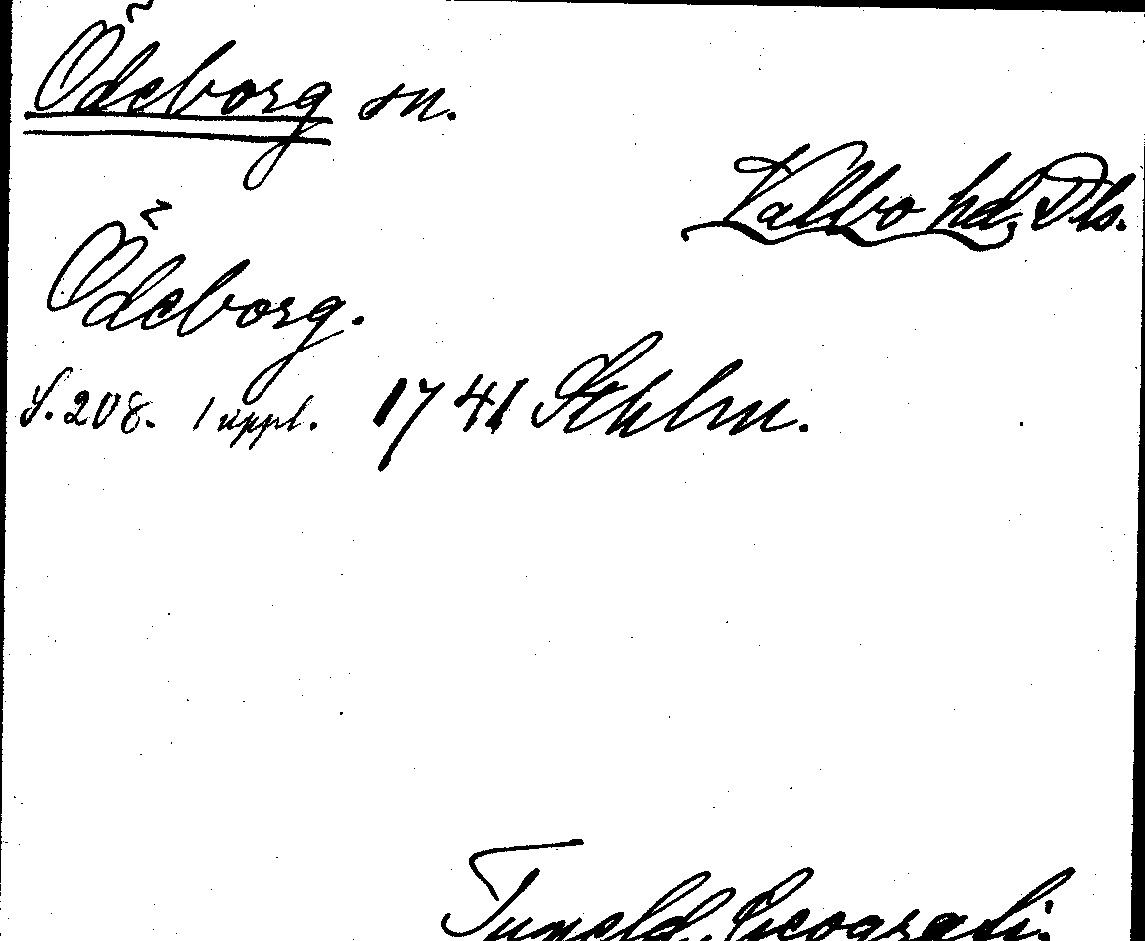 Ödeborg sn.
Valbo hd, Dls.
Ödeborg.
S. 208. 1 uppl. 1741 Sthlm.
Tuneld, Geografi.